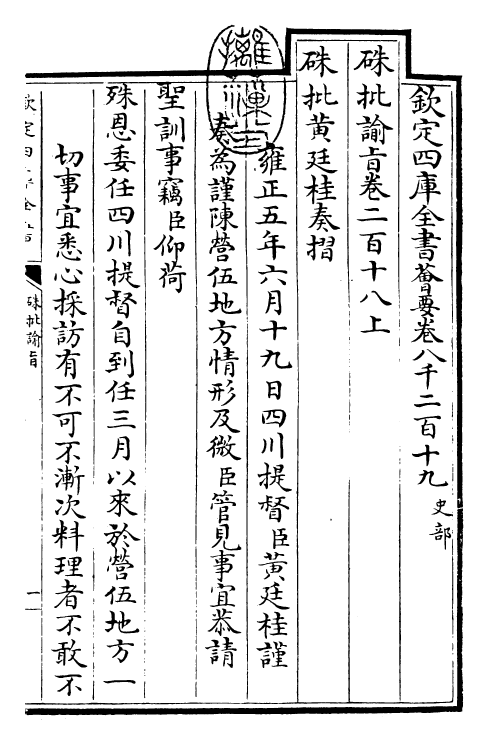 欽定四庫全書薈要卷八千二百十九 史部
硃批諭旨卷二百十八上
硃批黄廷桂奏摺
雍正五年六月十九日四川提督臣黄廷桂謹
奏為謹陳營伍地方情形及微臣管見事宜恭請
聖訓事竊臣仰荷
殊恩委任四川提督自到任三月以來於營伍地方一
切事宜悉心採訪有不可不漸次料理者不敢不
硃批諭旨
一